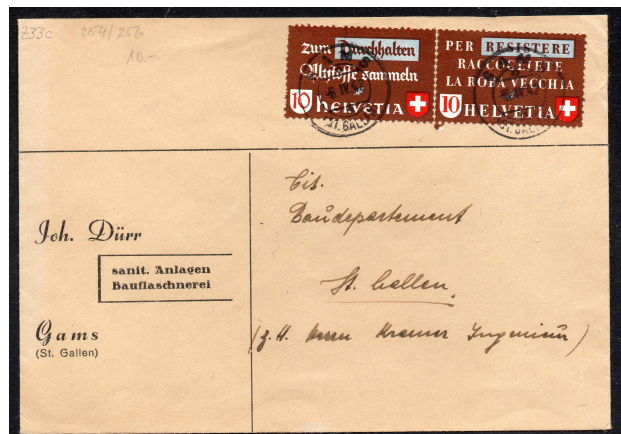 Z33c 254/256
10.-
zum Durchhalten
Altstoffe sammeln
10 HELVETIA
PER RESISTERE
RACCOGLIETE
LA ROBA VECCHIA
10 HELVETIA
(ST. GALLEN)
(ST. GALLEN)
Joh. Dürr
sanit. Anlagen
Bauflaschnerei
Gams
(St. Gallen)
Tit.
Baudepartement
St. Gallen
(z. H. Herrn Kramer Ingenieur)